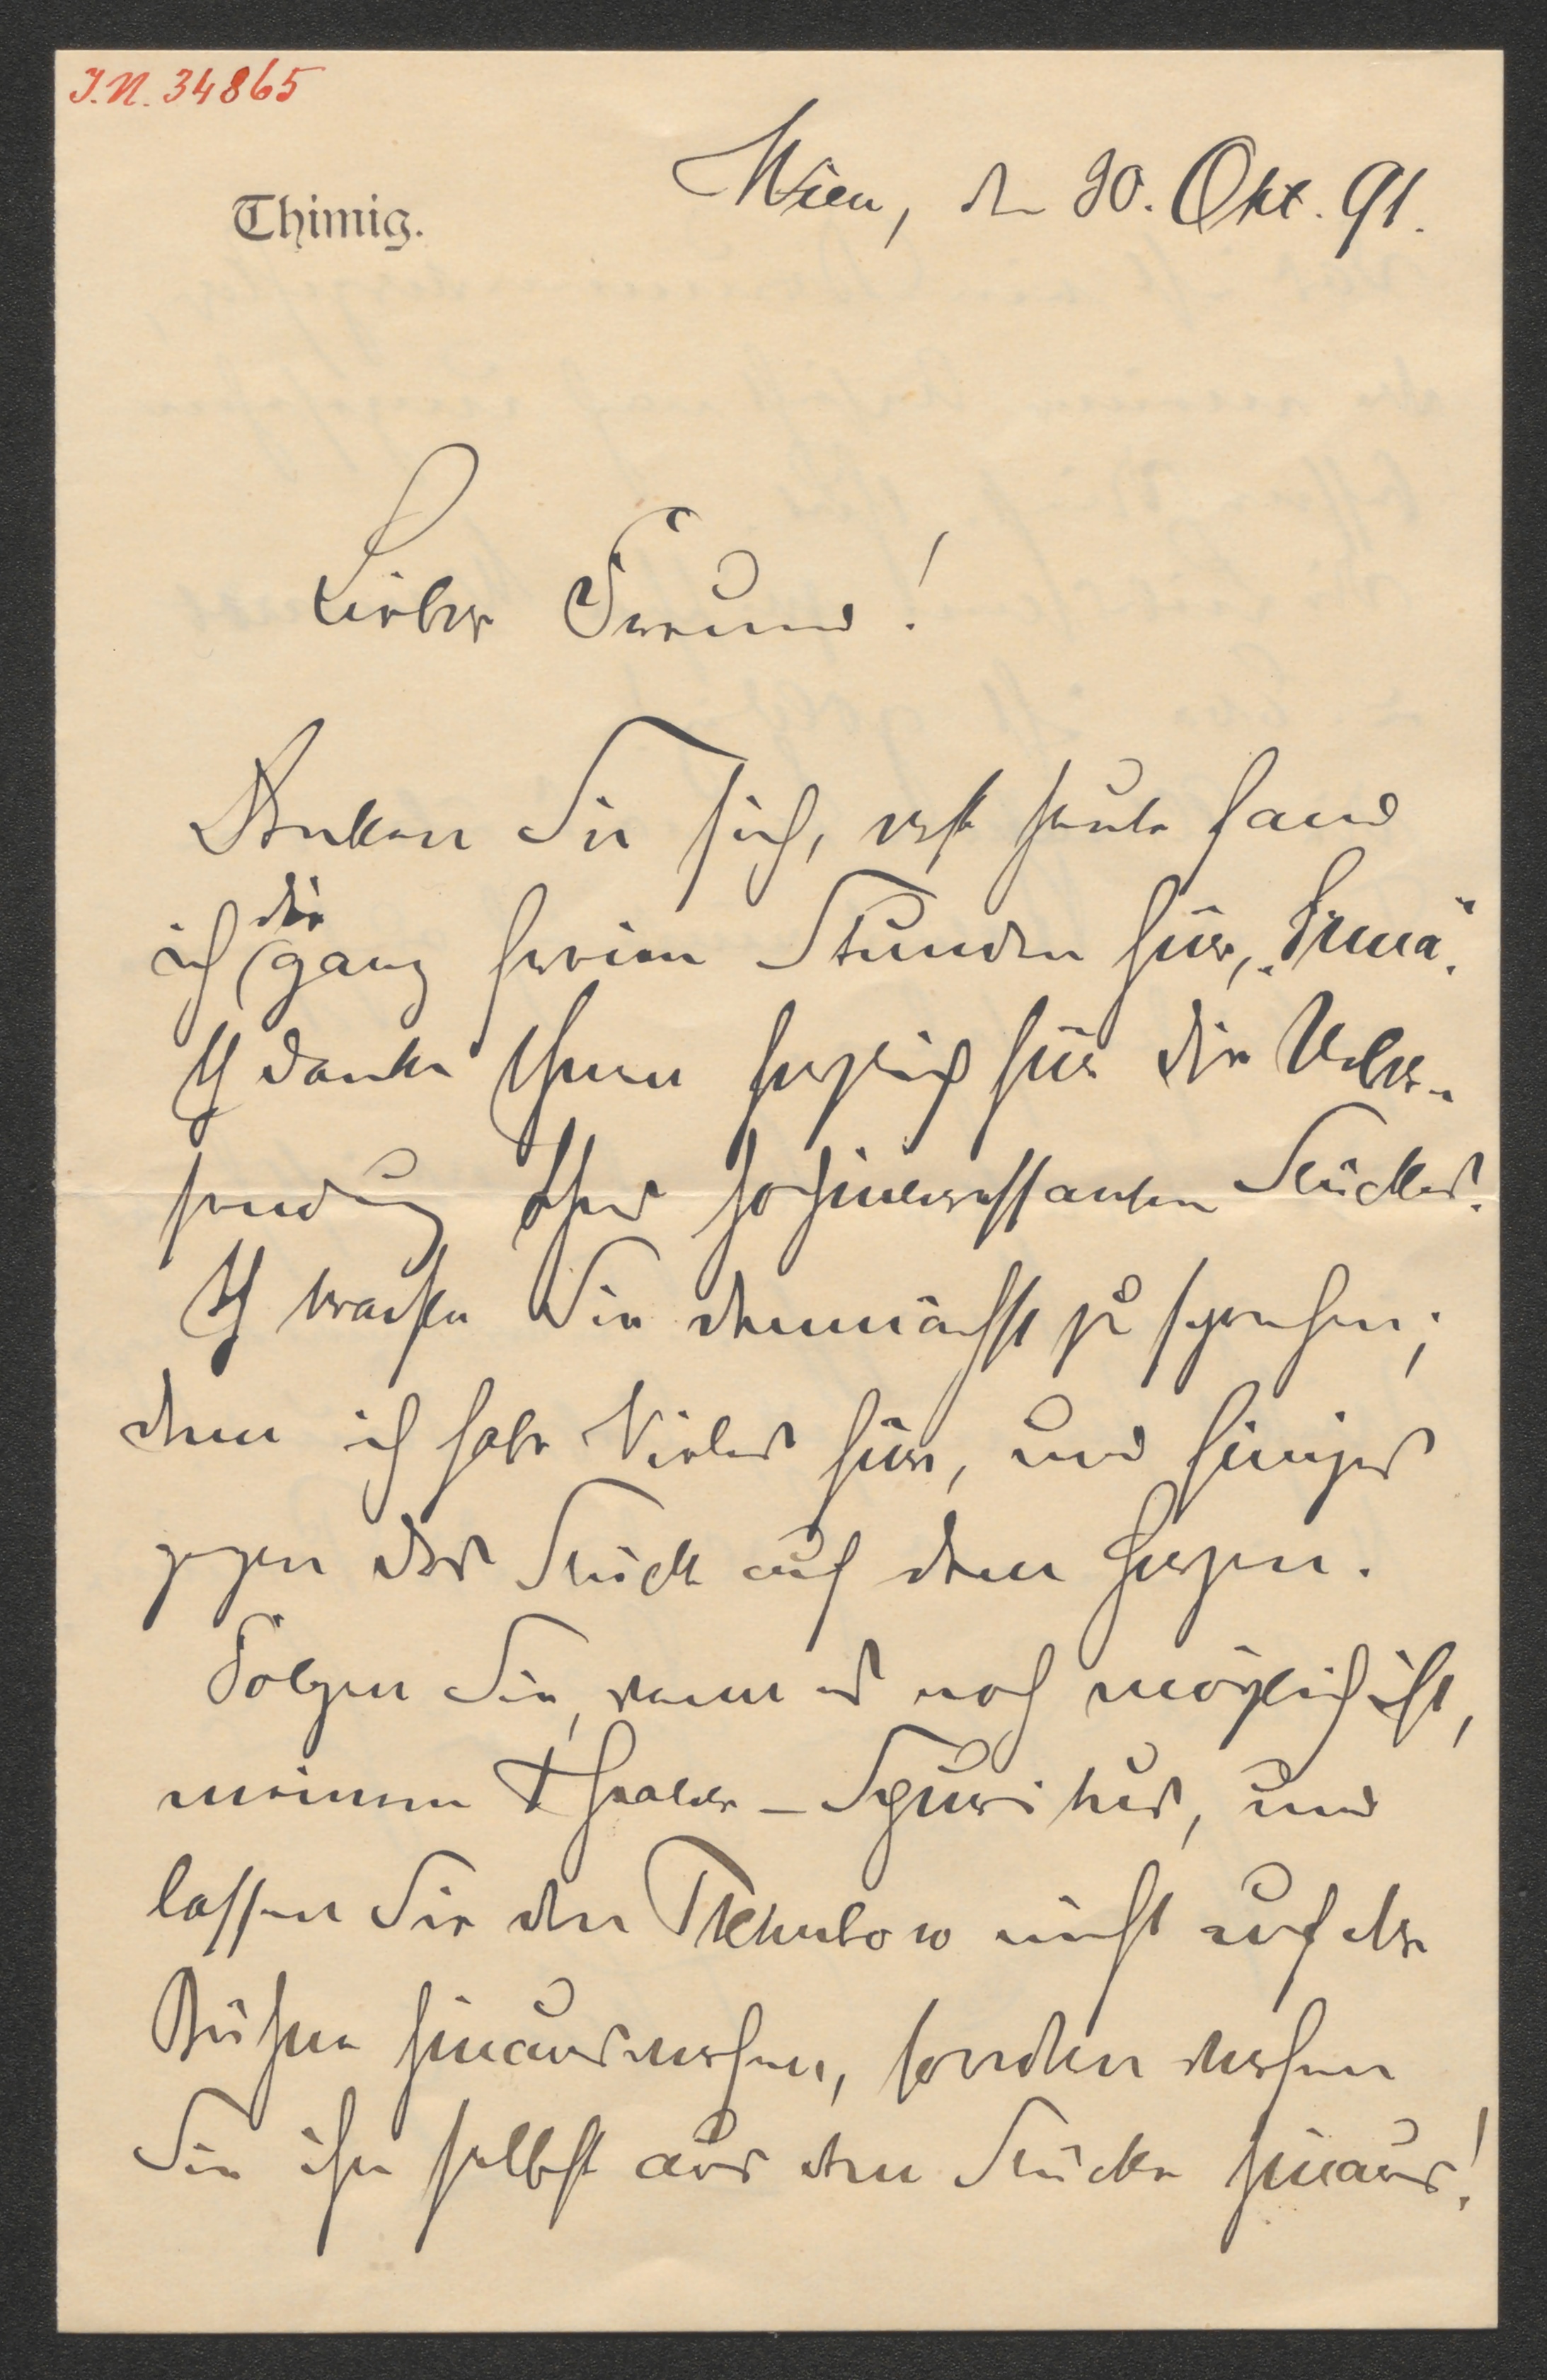 I.N. 34865
Thimig.
Wien, den 30. Okt. 91.
Lieber Freund!
Denken Sie sich, erst heute fand
ich die ganz freien Stunden für „Irma“.
Ich danke Ihnen herzlich für die Ueber-
sendung Ihres hochinteressanten Stückes.
Ich trachte Sie demnächst zu sprechen;
denn ich habe Vieles für, und Einiges
gegen das Stück auf dem Herzen.
Folgen Sie, wenn es noch möglich ist,
meinem Theater-Spiritus, und
lassen Sie den nicht auf der
Bühne hinauswerfen, sondern werfen
Sie ihn selbst aus dem Stücke hinaus!